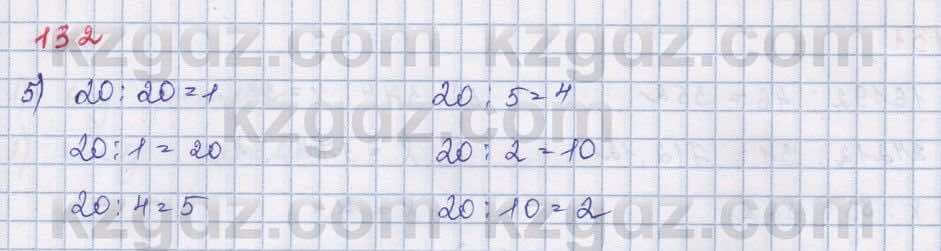 132
5) 20 : 20 = 1 20 : 5 = 4
20 : 1 = 20 20 : 2 = 10
20 : 4 = 5 20 : 10 = 2
kzgdz.com kzgdz.com
kzgdz.com
kzgdz.com kzgdz.com